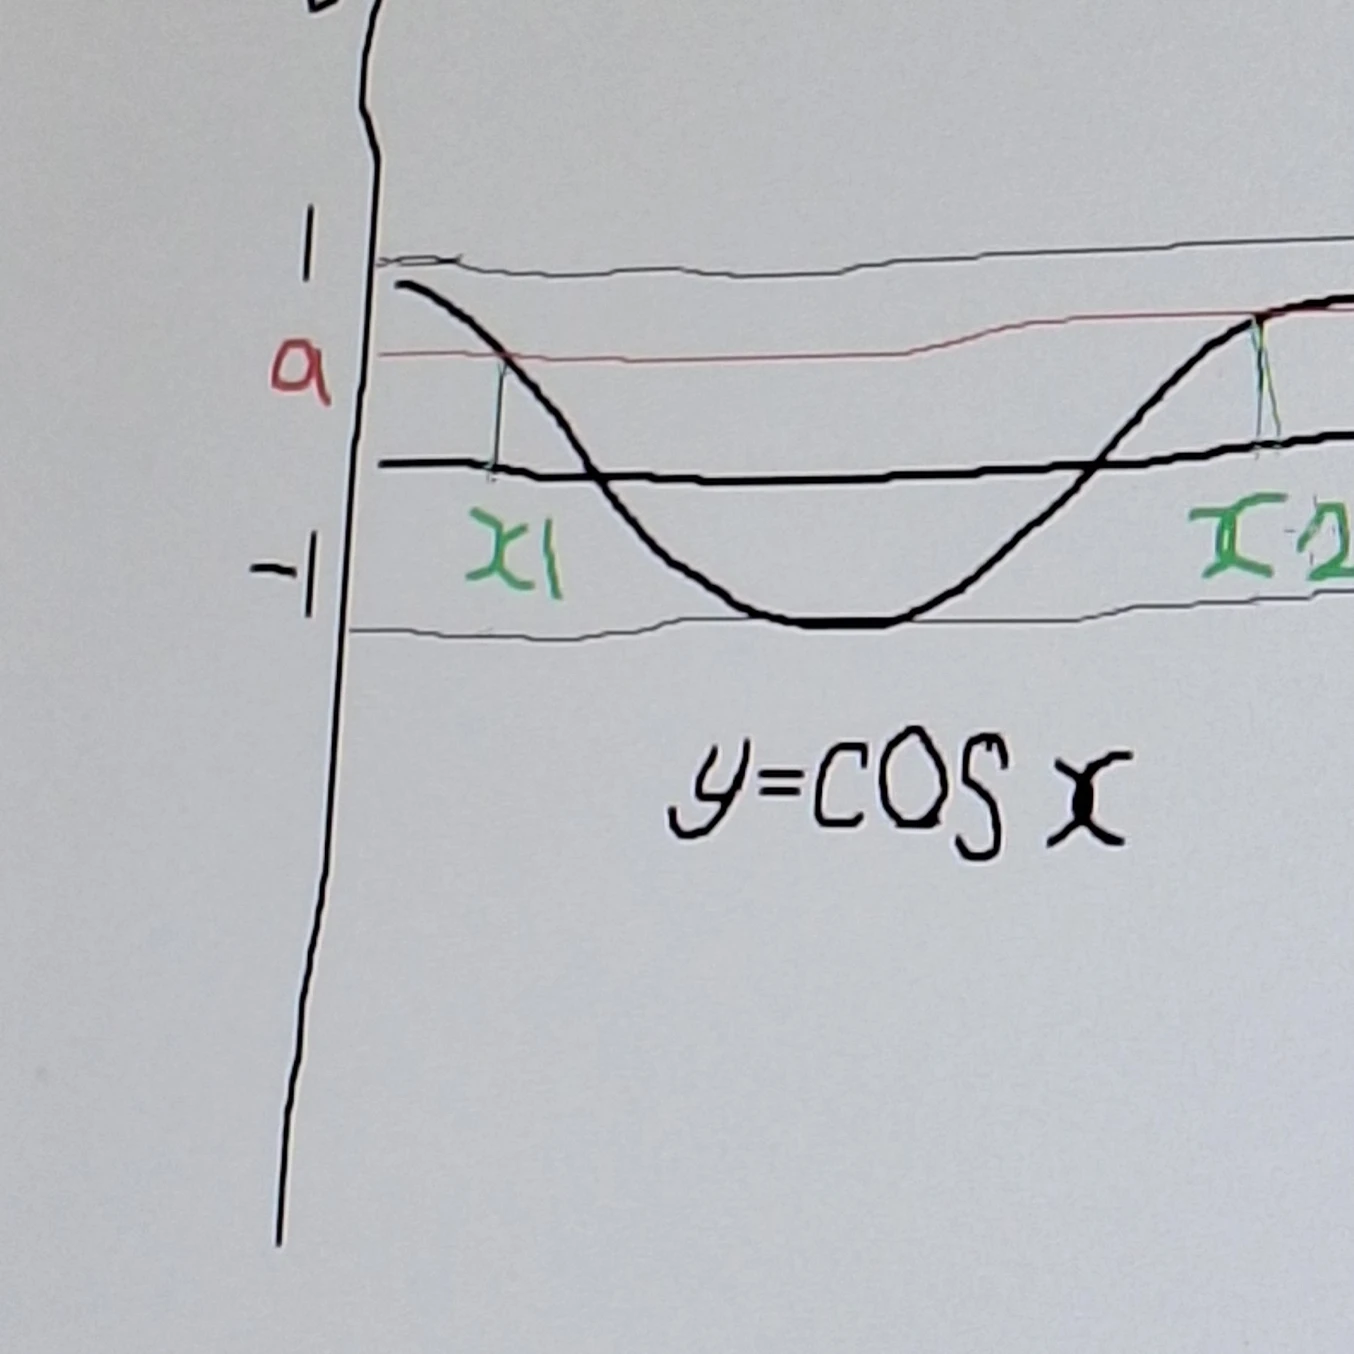 1
a
-1
x1
x2
y=cos x